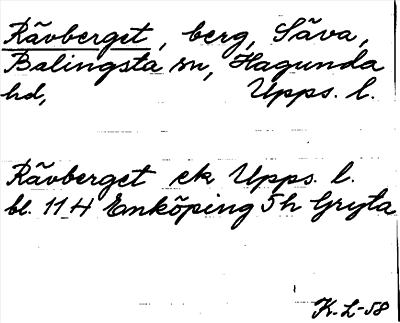 Rävberget, berg, Säva,
Balingsta sn, Hagunda
hd, Upps. l.
Rävberget ek Upps. l.
bl. 11 H Enköping 5h Gryta
K.L-58